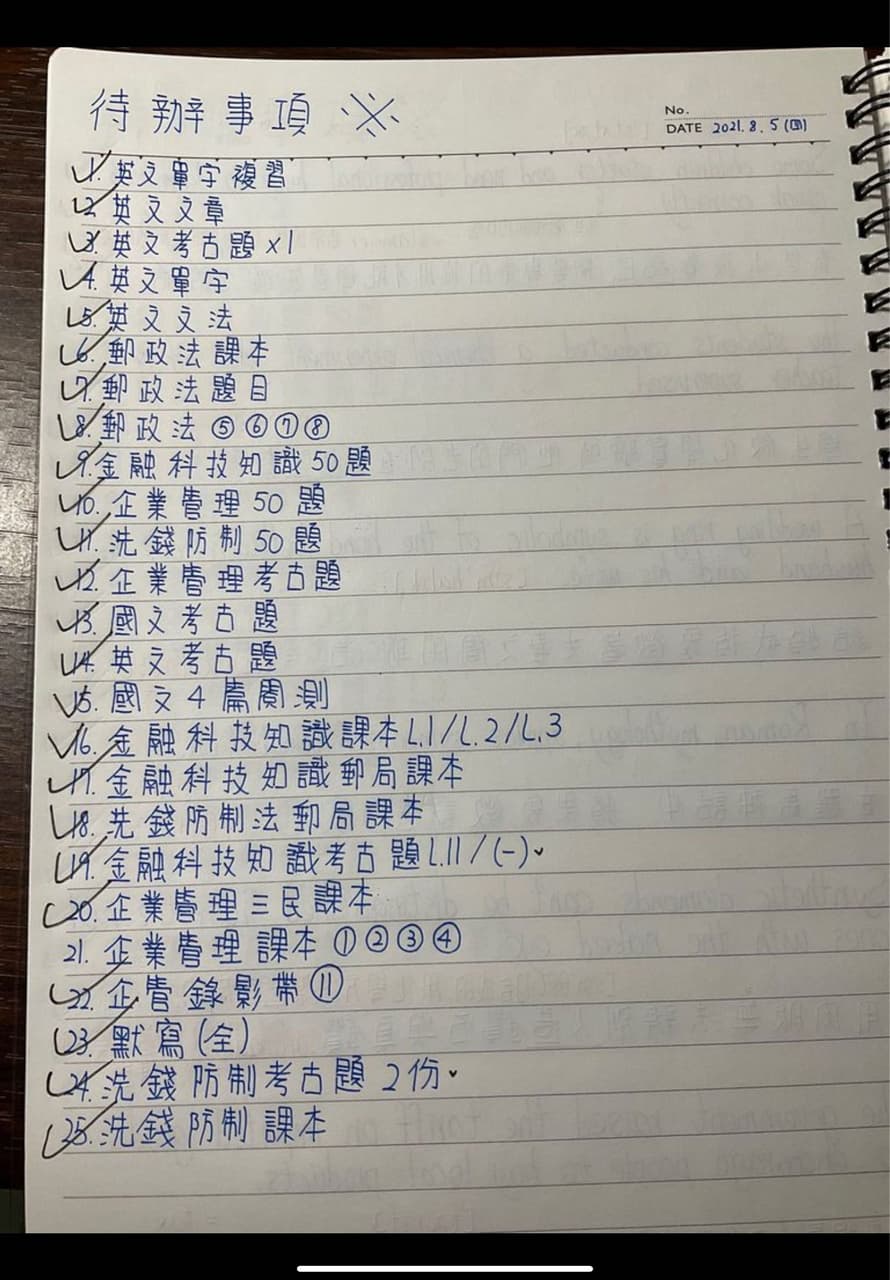 待辦事項 ※
No.
DATE 2021. 8. 5 (四)
1. 英文單字複習
2. 英文文章
3. 英文考古題 x1
4. 英文單字
5. 英文文法
6. 郵政法課本
7. 郵政法題目
8. 郵政法 ⑤ ⑥ ⑦ ⑧
9. 金融科技知識 50 題
10. 企業管理 50 題
11. 洗錢防制 50 題
12. 企業管理考古題
13. 國文考古題
14. 英文考古題
15. 國文 4 篇閱測
16. 金融科技知識課本 L.1 / L.2 / L.3
17. 金融科技知識郵局課本
18. 洗錢防制法郵局課本
19. 金融科技知識考古題 L.11 / (一)
20. 企業管理三民課本
21. 企業管理課本 ① ② ③ ④
22. 企管錄影帶 ⑪
23. 默寫 (全)
24. 洗錢防制考古題 2 份
25. 洗錢防制課本